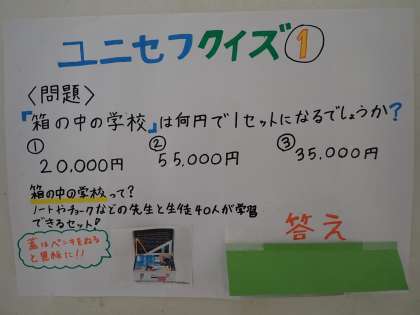 ユニセフクイズ①
〈問題〉
『箱の中の学校』は何円で1セットになるでしょうか?
① 20,000円 ② 55,000円 ③ 35,000円
箱の中の学校って?
ノートやチョークなどの先生と生徒40人が学習
できるセット!
蓋はペンキをぬる
と黒板に!!
答え